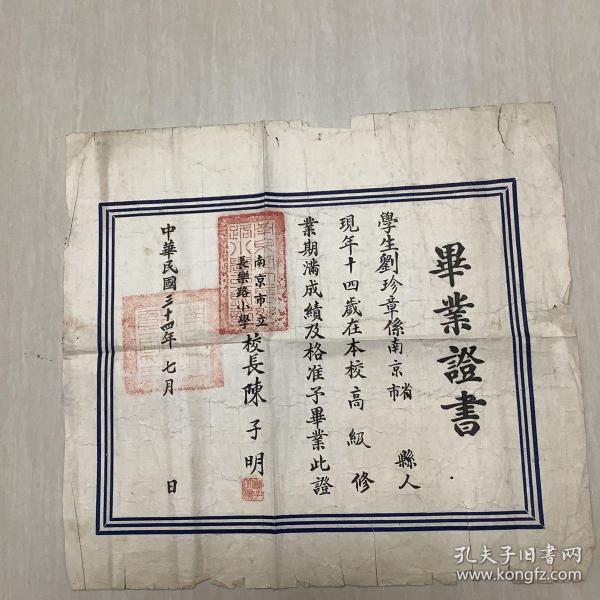 畢業證書
學生劉珍章係南京省市 縣人
現年十四歲在本校高級修
業期滿成績及格准予畢業此證
南京市立
長樂路小學
校長陳子明
中華民國三十四年七月 日
孔夫子旧书网
www.kongfz.com